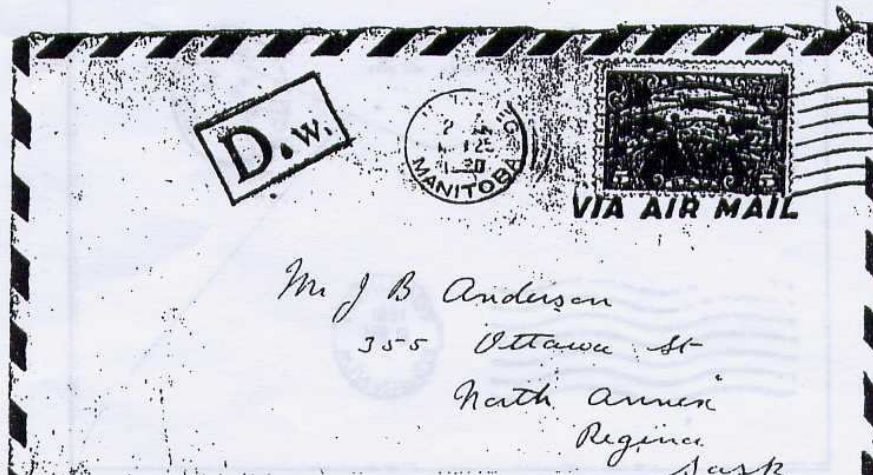 D.W.
MANITOBA
VIA AIR MAIL
Mr J B Anderson
355 Ottawa St
North Annex
Regina
Sask